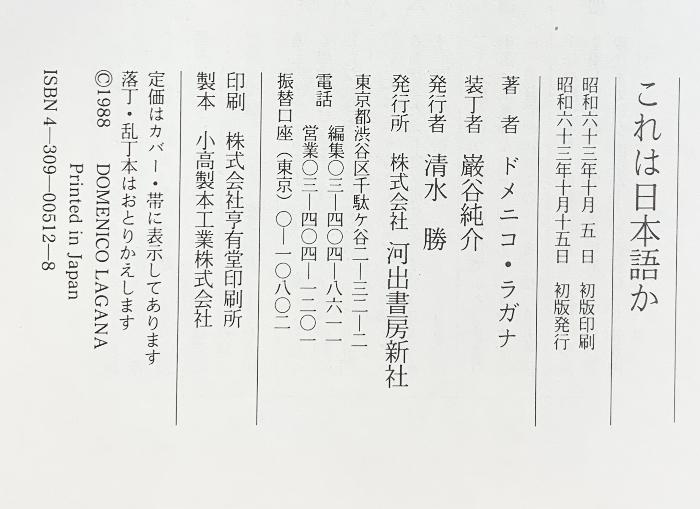 これは日本語か
昭和六十三年十月 五 日 初版印刷
昭和六十三年十月十五日 初版発行
著 者 ドメニコ・ラガナ
装丁者 巌谷純介
発行者 清水 勝
発行所 株式会社 河出書房新社
東京都渋谷区千駄ケ谷二―三二―二
電話 編集〇三―四〇四―八六一一
営業〇三―四〇四―一二〇一
振替口座(東京)〇―一〇八〇二
印刷 株式会社亨有堂印刷所
製本 小高製本工業株式会社
定価はカバー・帯に表示してあります
落丁・乱丁本はおとりかえします
©1988 DOMENICO LAGANA
Printed in Japan
ISBN 4―309―00512―8